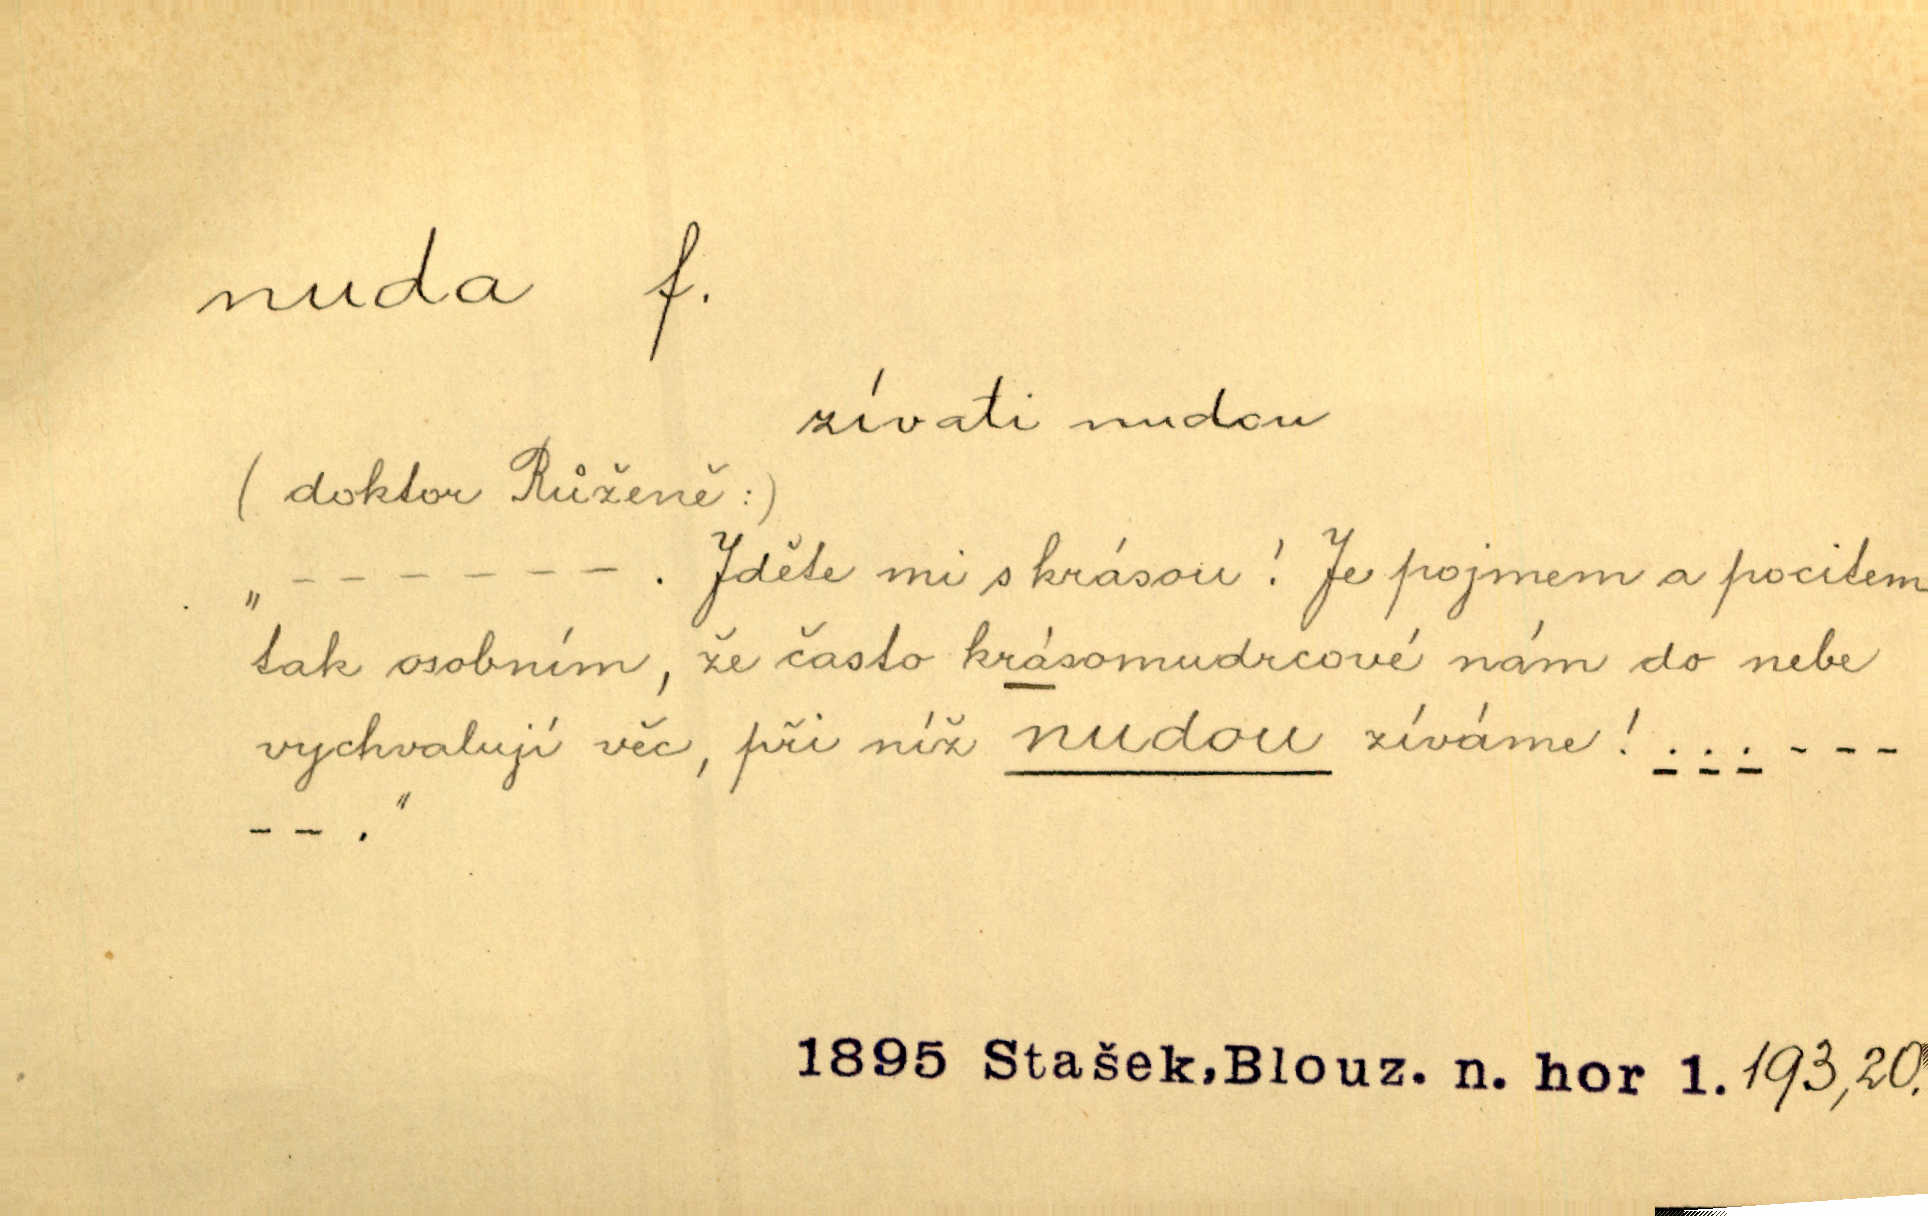 nuda f.
zívati nudou
(doktor Růženě:)
„ – – – – – – – . Jděte mi s krásou! Je pojmem a pocitem
tak osobním, že často krásomudrcové nám do nebe
vychvalují věc, při níž nudou zíváme! . . . - - -
- - .“
1895 Stašek,Blouz. n. hor 1. 193,20.